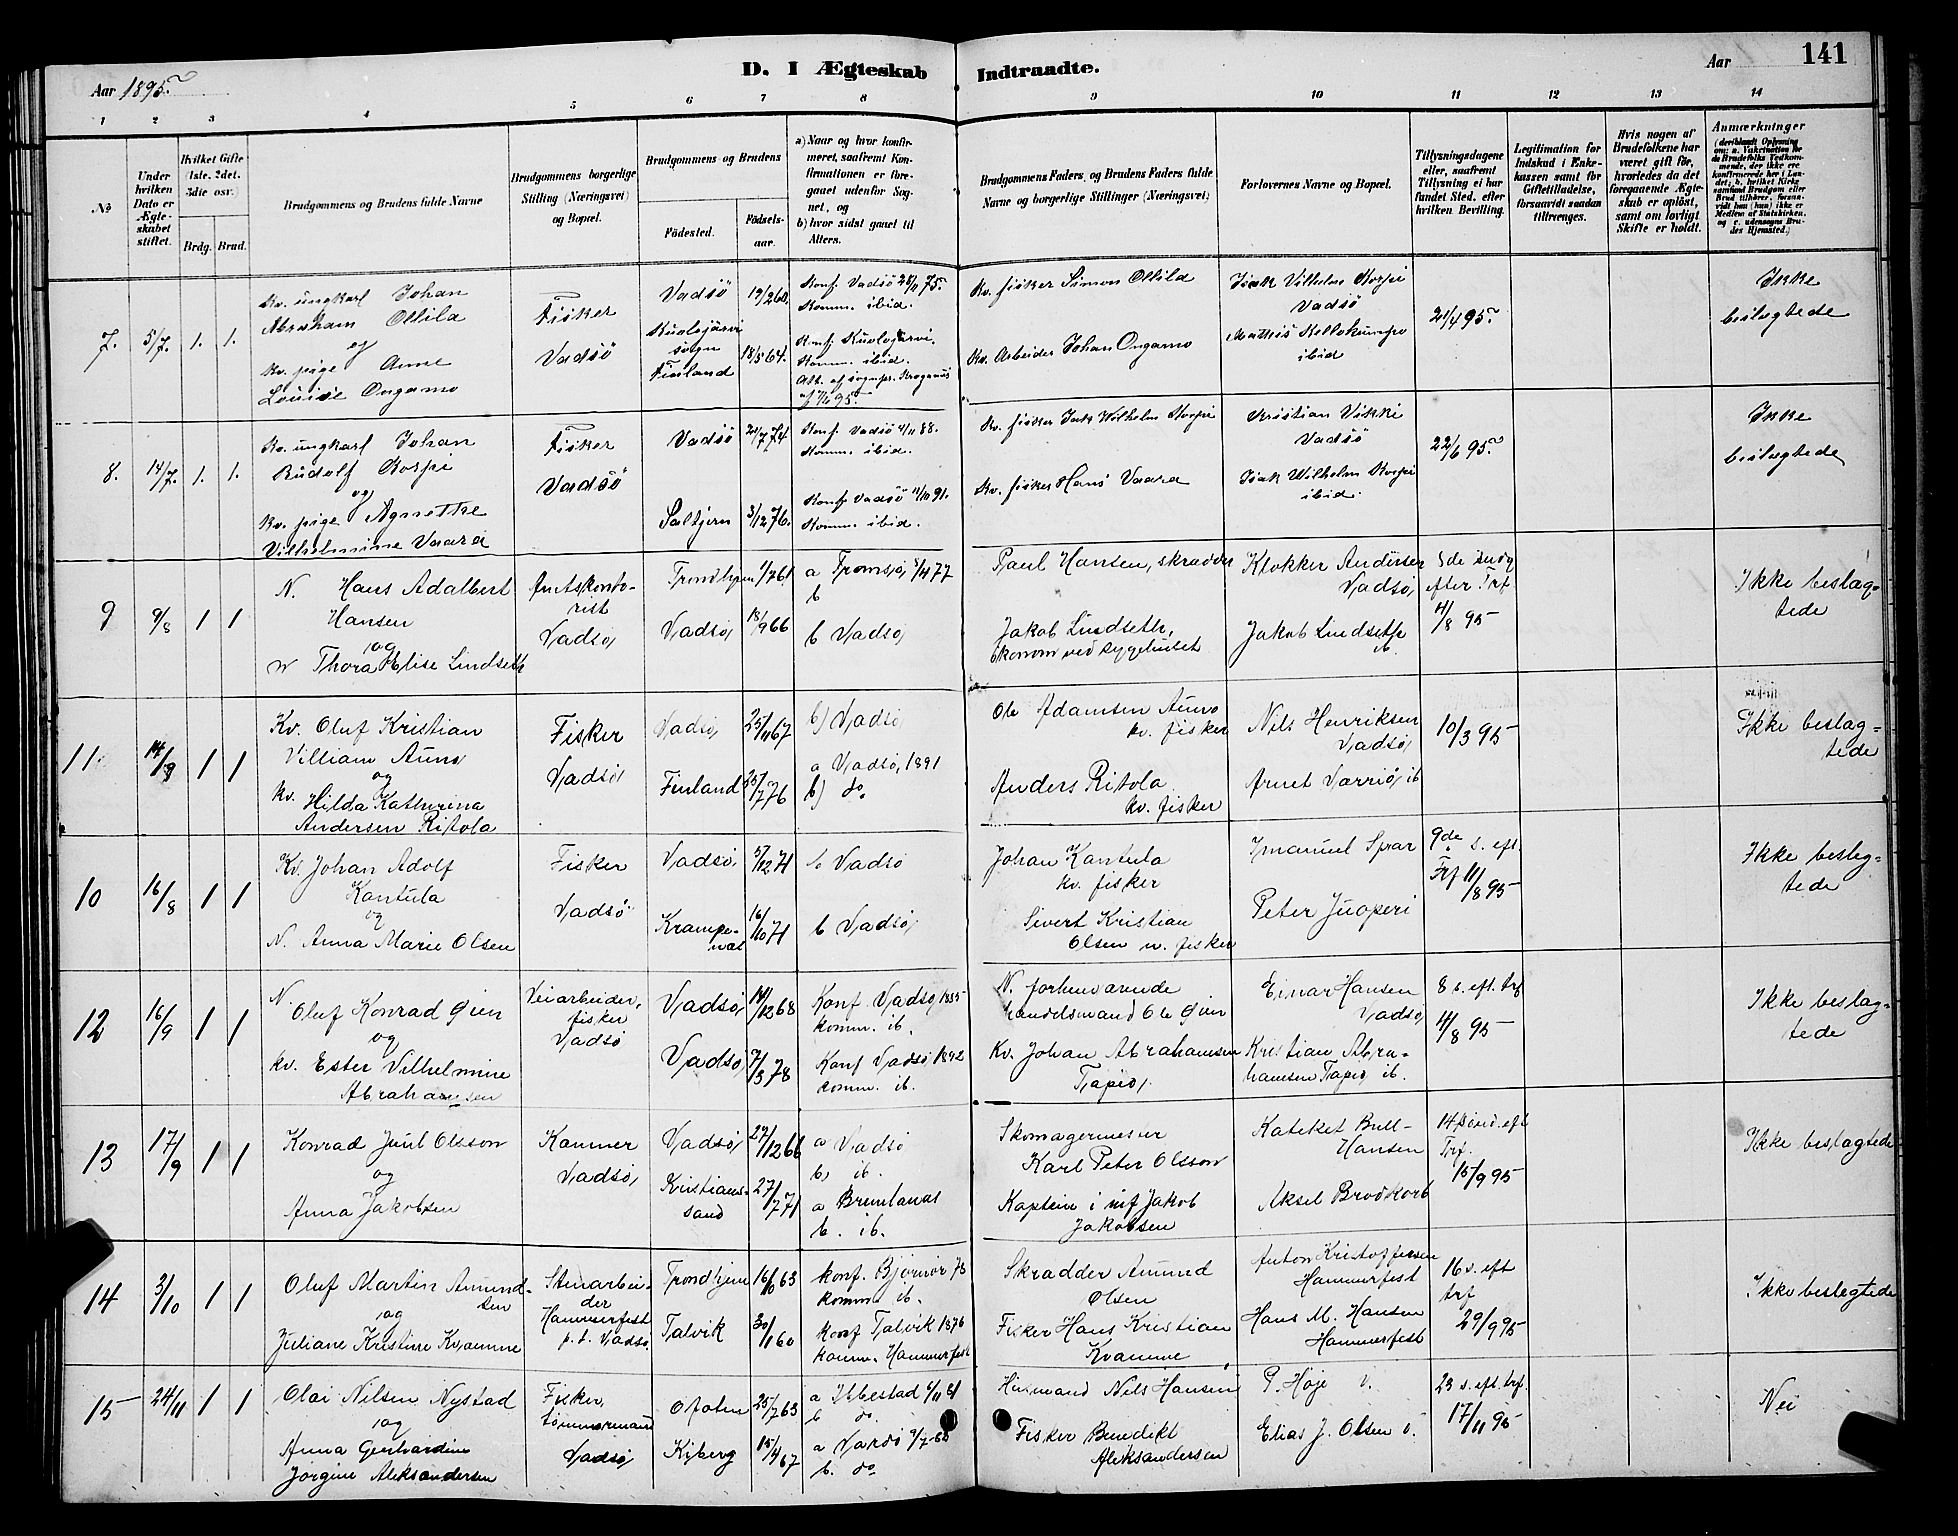 141
D. I Ægteskab Indtraadte.
Aar 1895.
Aar
1 2 3 4 5 6 7 8 9 10 11 12 13 14
No
Under hvilken Dato er Ægteskabet stiftet.
Hvilket Gifte (1ste. 2det. 3die osv.)
Brdg. Brud.
Brudgommens og Brudens fulde Navne
Brudgommens borgerlige Stilling (Næringsvei) og Bopæl.
Brudgommens og Brudens
Födested.
Födselsaar.
a) Naar og hvor konfirmeret, saafremt Konfirmationen er foregaaet udenfor Sognet, og
b) hvor sidst gaaet til Alters.
Brudgommens Faders, og Brudens Faders fulde Navne og borgerlige Stillinger (Næringsvei)
Forlovernes Navne og Bopæl.
Tillysningsdagene eller, saafremt Tillysning ei har fundet Sted, efter hvilken Bevilling.
Legitimation for Indskud i Enkekassen samt for Giftetilladelse, forsaavidt saadan tiltrænges.
Hvis nogen af Brudefolkene har været gift för, hvorledes da det foregaaende Ægteskab er oplöst, samt om lovligt Skifte er holdt.
Anmærkninger
7. 5/7. 1. 1.
Kv. ungkarl Johan
Abraham Ollila
og
Kv. pige Anne
Louise Ongamo
Fisker
Vadsö
Vadsö
Kuolajärvi
sogn
Finland
18/5 64.
Konf. Vadsö 75.
Komm. ibid.
Konf. Kuolajärvi.
Komm. ibid.
Kv. fisker Simon Ollila
Kv. Arbeider Johan Ongamo
Isak Vilhelm Korpi
Vadsö
ibid
21/4 95.
Ikke
beslægtede
8. 14/7. 1. 1.
Kv. ungkarl Johan
Rudolf Korpi
og
Kv. pige Agnethe
Vilhelmine Vaara
Fisker
Vadsö
Vadsö 21/7 74.
Saltjern 3/12 76.
Konf. Vadsö 88.
Komm. ibid.
Konf. Vadsö 91.
Komm. ibid.
Kv. fisker Isak Wilhelm Korpi
Kv. fisker Hans Vaara
Kristian Vikki
Vadsö
Isak Wilhelm Korpi
ibid.
22/6 95.
Ikke
beslægtede
9 9/8 1 1
N. Hans Adalbert
Hansen
og
N Thora Elise Lindseth
Amtskontorist
Vadsø
Trondhjem 1/7 61
Vadsø 18/9 66
a Tromsø 77
b
b Vadsø
Paul Hansen, skrædder
Jakob Lindseth,
økonom ved sygehuset
Klokker Andersen
Vadsø
Jakob Lindseth
ib.
efter Trf
4/8 95
Ikke beslægtede
11. 14/9 1 1
Kv. Oluf Kristian
Villiam Auno
og
Kv. Hilda Katharina
Andersen Ritola
Fisker
Vadsø
Vadsø 25/11 67
Finland 25/7 76
b) Vadsø
a Vadsø, 1891
b) do.
Ole Adamsen Auno
kv. fisker
Anders Ritola
kv. fisker
Nils Henriksen
Vadsø
Arnet Varriø, ib
10/3 95
Ikke beslægtede
10 16/8 1 1
Kv. Johan Adolf
Kantula
og
N. Anna Marie Olsen
Fisker
Vadsø
Vadsø 5/12 71
Krampenæs 16/10 71
b Vadsø
b Vadsø
Johan Kantula
kv. fisker
Sivert Kristian
Olsen n. fisker
Imanuel Sprar
Peter Juoperi
9de s. eft.
Trf 11/8 95
Ikke beslægtede
12 16/9 1 1
N. Oluf Konrad Gien
og
kv. Ester Vilhelmine
Abrahamsen
Veiarbeider,
fisker
Vadsø
Vadsø 14/12 68
Vadsø 7/3 78
Konf. Vadsø, 1885
komm. ib.
Konf Vadsø, 1892
komm. ib.
N. forhenværende
handelsmand Ole Gien
Kv. Johan Abrahamsen
Tapio,
Einar Hansen
Vadsø
Kristian Abrahamsen Tapio, ib.
8 s. eft. trf
4/8 95
Ikke beslægtede
13 17/9 1 1
Konrad Juul Olsson
og
Anna Jakobsen
Vadsø
Vadsø 27/12 66
Kristianssand 27/7 71
a Vadsø
b) ib.
a Brunlanæs
b. ib.
Skomagermester
Karl Peter Olsson
Kaptein i inf Jakob
Jakobsen
Kateket Bull-
Hansen
Aksel Brodkorb
14 sønd. eft
Trf.
15/9 95
Ikke beslægtede
14 3/10 1 1
Oluf Martin Amundsen
og
Juliane Kristine Kvamme
Stenarbeider
Hammerfest
p. t. Vadsø
Trondhjem 16/10 63
Talvik 30/1 60
konf. Bjørnør 78
komm ib.
konf Talvik 1876
komm. Hammerfest
Skrædder Amund
Olsen
Fisker Hans Kristian
Kvamme
Anton Kristoffersen
Hammerfest
Hans M. Hansen
Hammerfest
16 s. eft
trf
29/9 95
Ikke beslegtede
15 24/11 1 1
Olai Nilsen Nystad
og
Anna Gerhardine
Jørgine Aleksandersen
Fisker,
tømmermand
Vadsø
Ofoten 25/7 63
Kiberg 15/4 67
a Ibbestad
b do.
a Vardø
b. do
Husmand Nils Hansen
Fisker Benedikt
Aleksandersen
P. Høje v.
Elias J. Olsen v.
23 s. eft. trf.
17/11 95
Nei